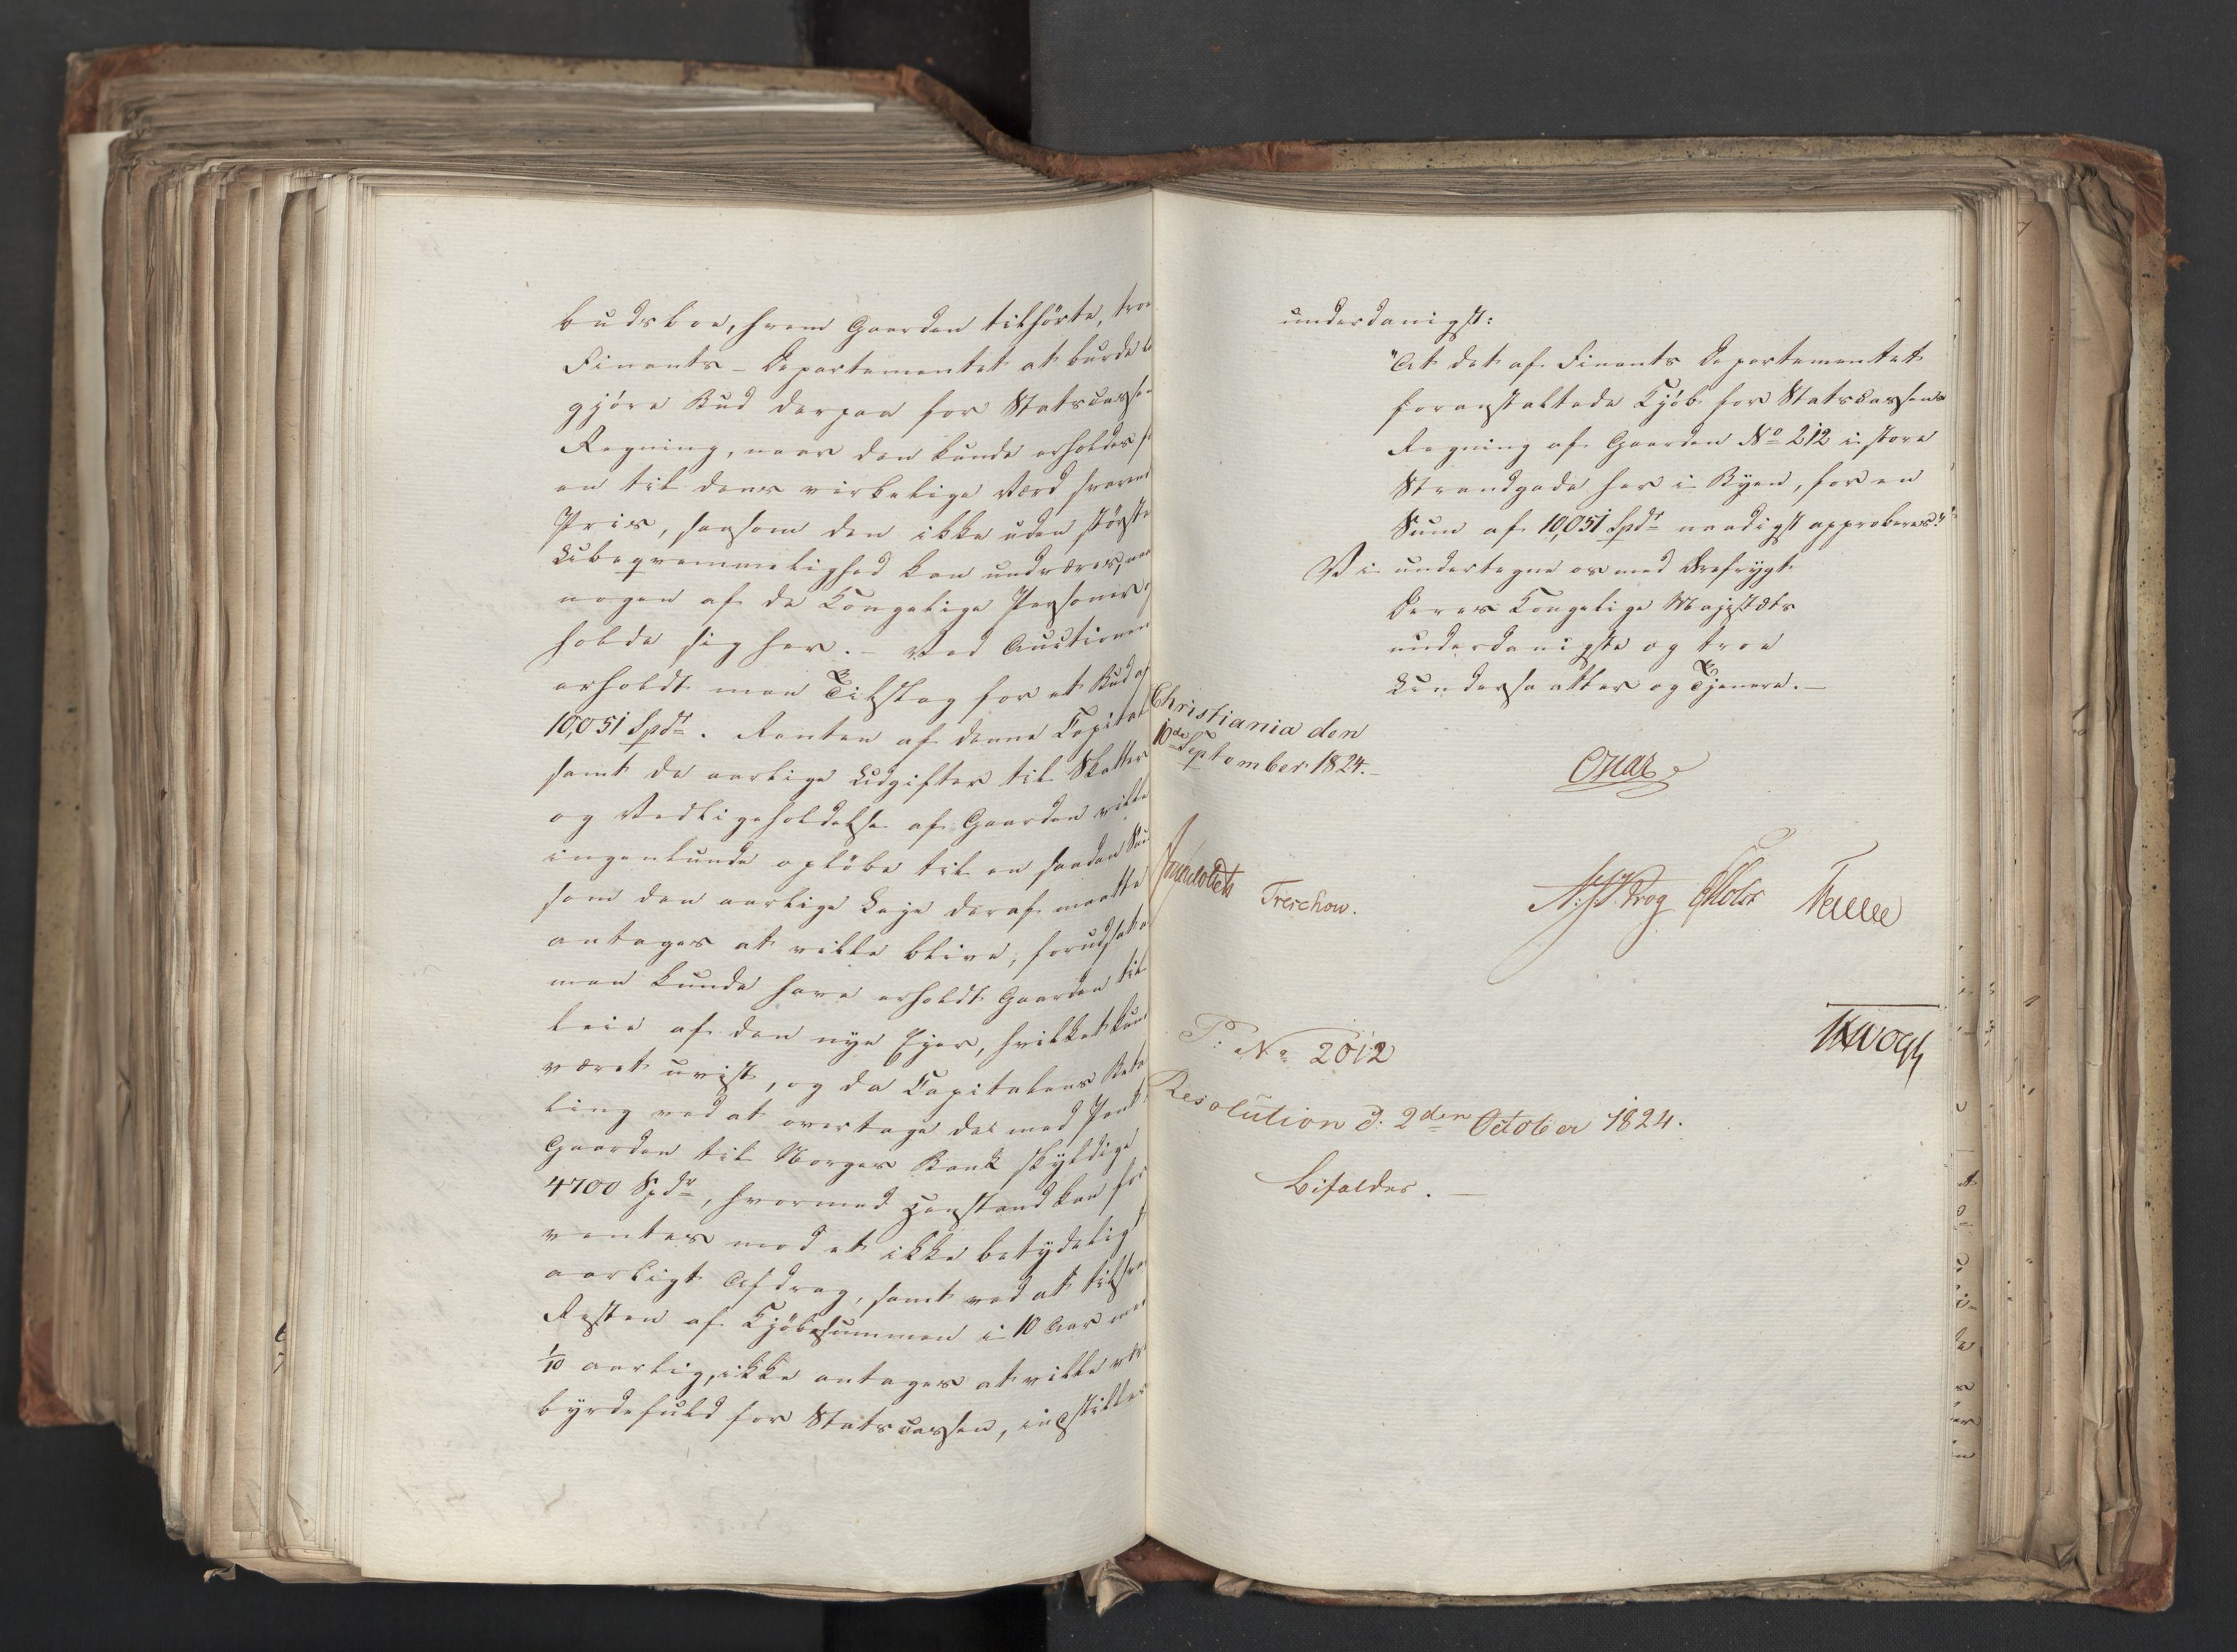 budsboe, hvem Gaarden tilhörte, troe
Finants-Departementet at burde
gjöre Bud derpaa for Statscassen
Regning, naar den kunde erholdes f
en til dens virkelige Værd svarend
Pris, saasom den ikke uden störste
Ubeqvemmelighed kan undværes, naa
nogen af de Kongelige Personer
holde sig her. – Ved Auctionen
erholdt man Tilslag for et Bud af
10,051 Spdr. Renten af denne Capital
samt de aarlige Udgifter til Skatter
og Vedligeholdelse af Gaarden ville
ingenlunde oplöbe til en saadan Su
som den aarlige Leje deraf maatte
antages at ville blive, forudsat a
man kunde have erholdt Gaarden til
Leie af den nye Ejer, hvilket kun
været uvist, og da Capitalens Beta
ling ved at overtage de med Pant i
Gaarden til Norges Bank skyldige
4700 Spdr, hvormed Henstand kan for
ventes mod et ikke betydeligt
aarligt Afdrag, samt ved at tilsva
Resten af Kjöbesummen i 10 Aar me
1/10 aarlig, ikke antages at ville vær
byrdefuld for Statscassen, indstilles
underdanigst:
"At det af Finants Departementet
foranstaltede Kjöb for Statscassens
Regning af Gaarden No 212 i store
Strandgade her i Byen, for en
Sum af 10,051 Spdr naadigst approberes."
Vi undertegne os med Ærefrygt
Deres Kongelige Majestæts
underdanigste og troe
Undersaatter og Tjenere. –
Christiania den
10de September 1824. –
Treschow.
P: No 2012
Resolution d. 2den October 1824.
Bifaldes. –